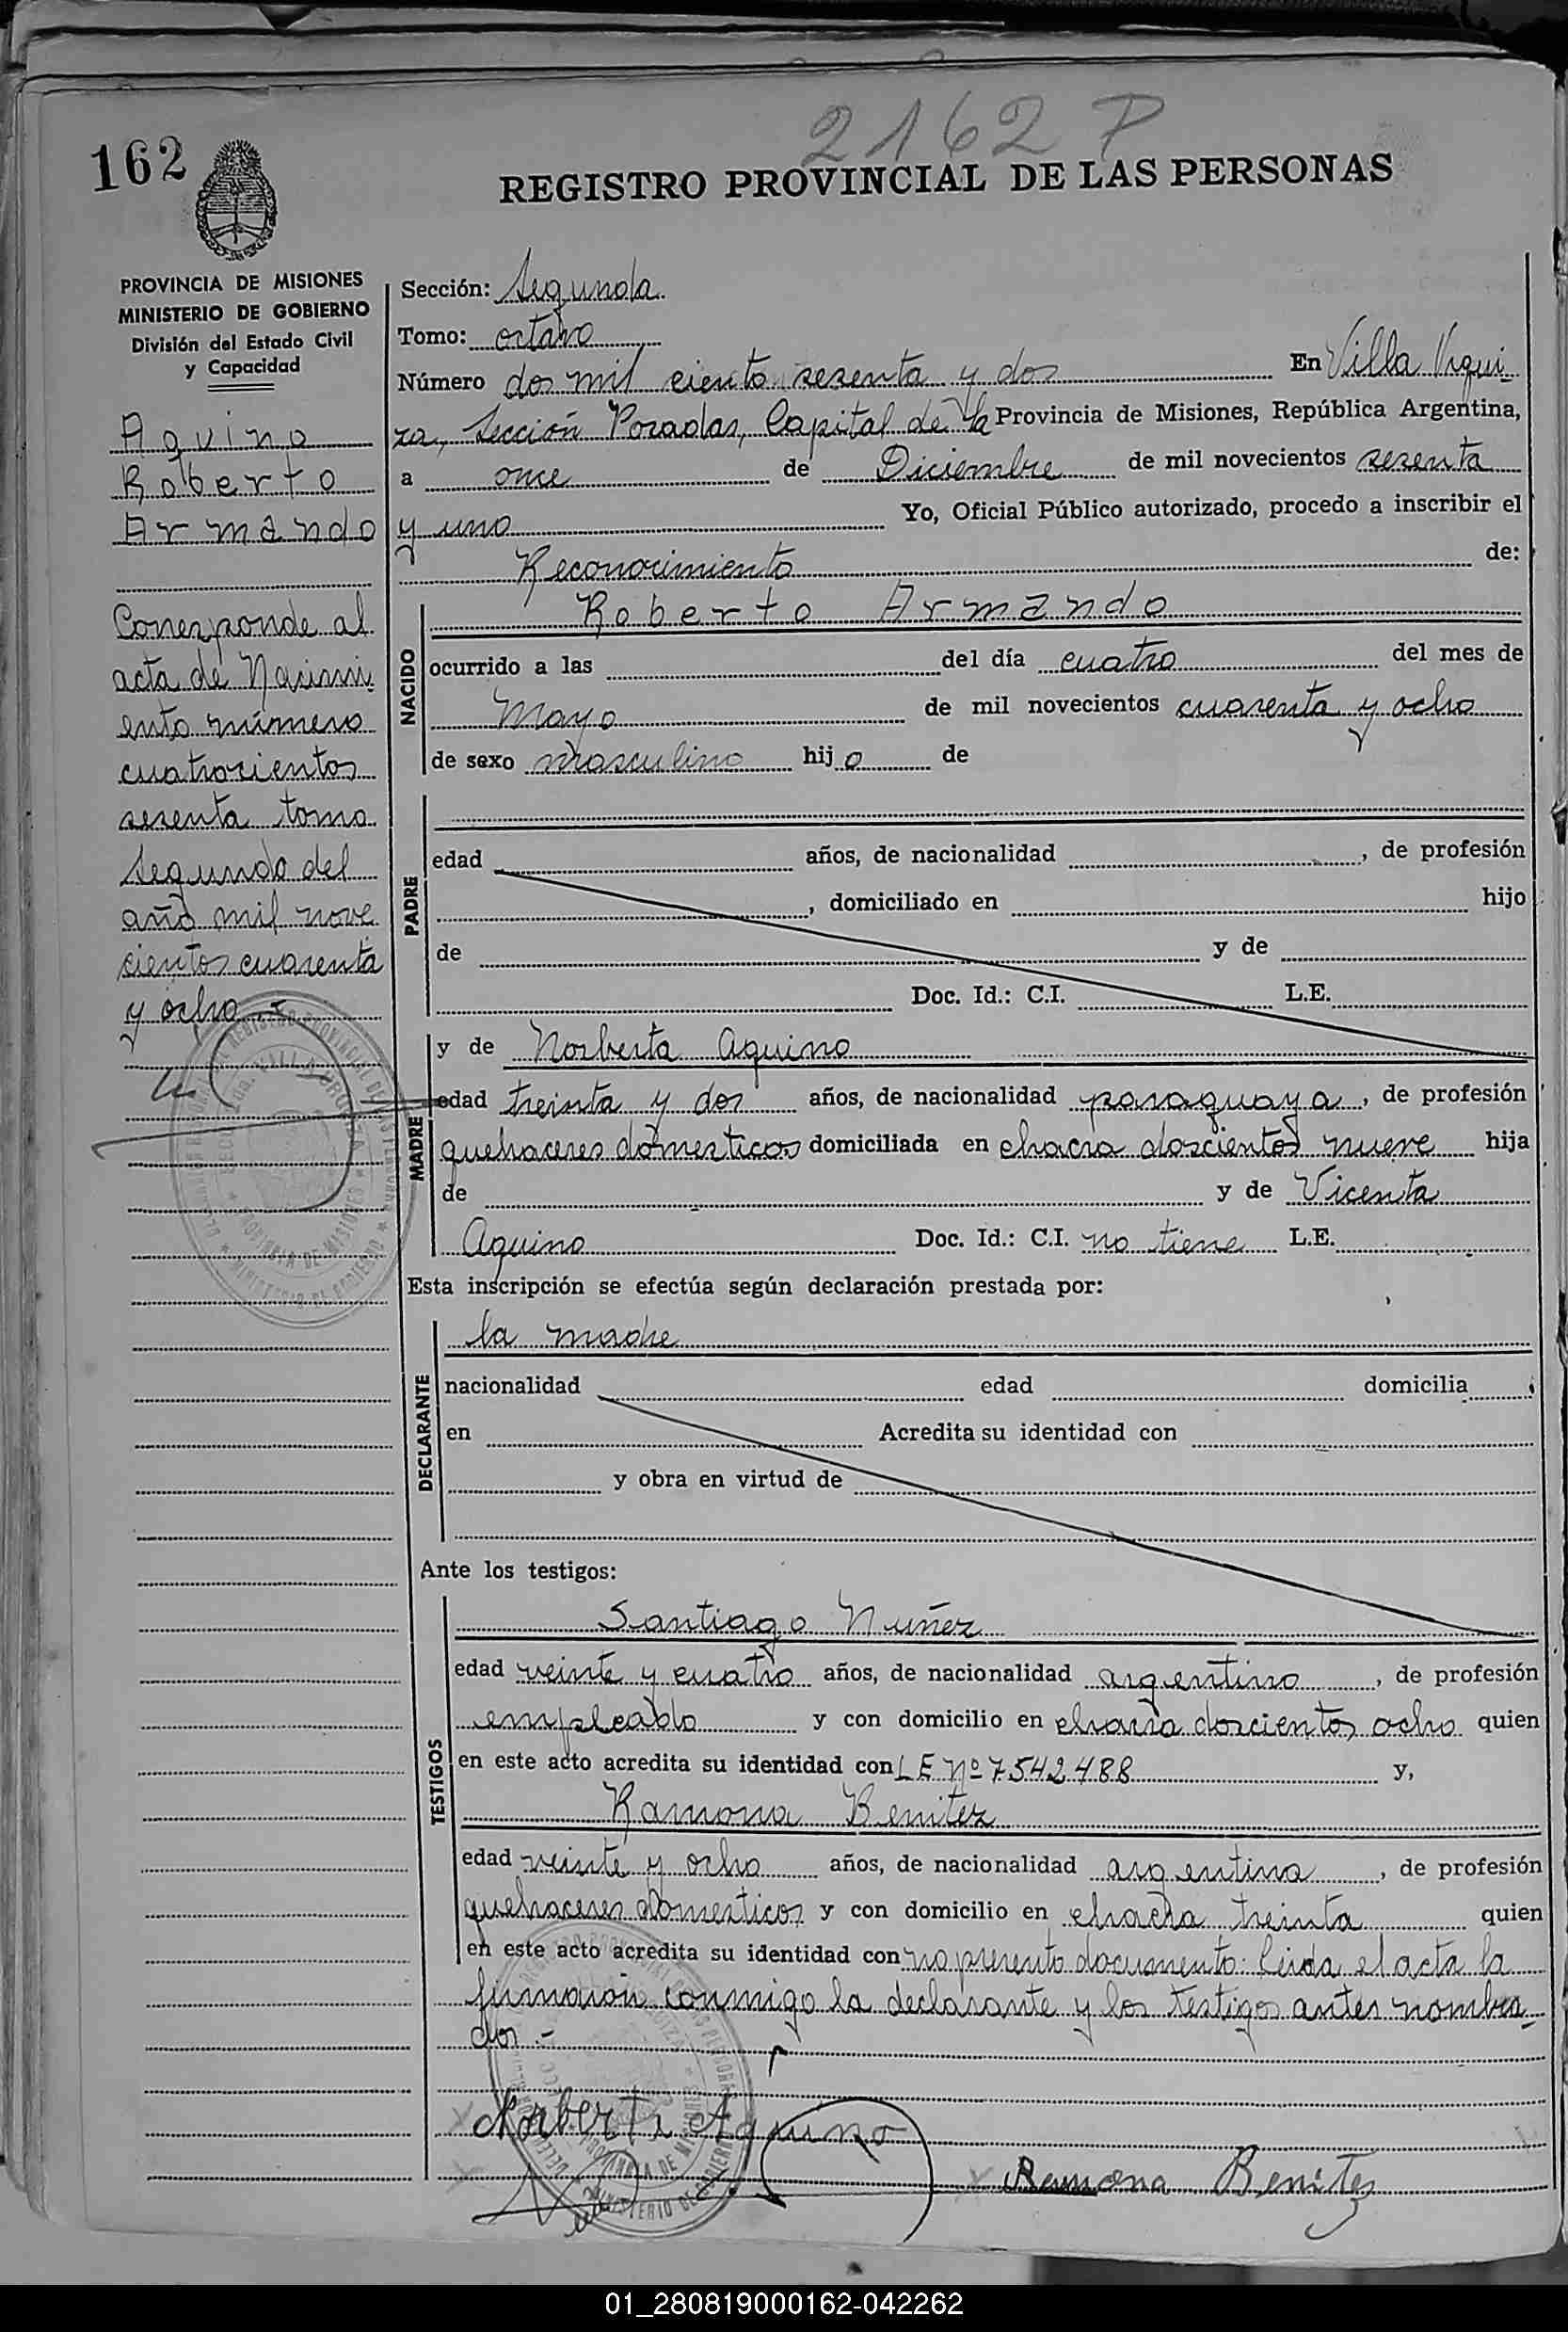 2162 P
162
REGISTRO PROVINCIAL DE LAS PERSONAS
PROVINCIA DE MISIONES
MINISTERIO DE GOBIERNO
División del Estado Civil
y Capacidad
Aquino
Roberto
Armando
Corresponde al
acta de Nacimi
ento número
cuatrocientos
sesenta tomo
segundo del
año mil nove
cientos cuarenta
y ocho.-
Sección: Segunda
Tomo: octavo
Número dos mil ciento sesenta y dos En Villa Urqui-
za, Sección Posadas, Capital de la Provincia de Misiones, República Argentina,
a once de Diciembre de mil novecientos sesenta
y uno Yo, Oficial Público autorizado, procedo a inscribir el
Reconocimiento de:
NACIDO
Roberto Armando
ocurrido a las del día cuatro del mes de
Mayo de mil novecientos cuarenta y ocho
de sexo masculino hijo de
PADRE
edad años, de nacionalidad , de profesión
, domiciliado en hijo
de y de
Doc. Id.: C.I. L.E.
MADRE
y de Norberta Aquino
edad treinta y dos años, de nacionalidad paraguaya, de profesión
quehaceres domesticos domiciliada en chacra doscientos nueve hija
de y de Vicenta
Aquino Doc. Id.: C.I. no tiene L.E.
Esta inscripción se efectúa según declaración prestada por:
DECLARANTE
la madre
nacionalidad edad domicilia
en Acredita su identidad con
y obra en virtud de
Ante los testigos:
TESTIGOS
Santiago Nuñez
edad veinte y cuatro años, de nacionalidad argentino, de profesión
empleado y con domicilio en chacra doscientos ocho quien
en este acto acredita su identidad con LE Nº 7542488 y,
Ramona Benitez
edad veinte y ocho años, de nacionalidad argentina, de profesión
quehaceres domesticos y con domicilio en chacra treinta quien
en este acto acredita su identidad con no presento documento. Leida el acta la
firmaron conmigo la declarante y los testigos antes nombra-
dos.-
Norberta Aquino
Ramona Benitez
01_280819000162-042262